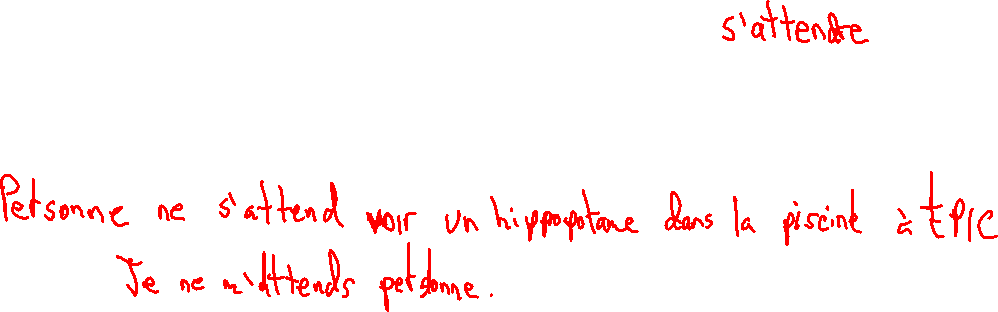 s'attendre
Personne ne s'attend voir un hippopotame dans la piscine à EPIC
Je ne m'attends personne.